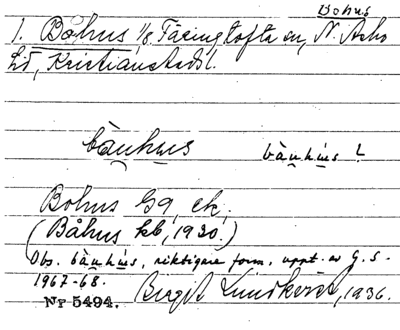 Bohus
1. Båhus 1/8 Färingtofta sn, N. Åsbo
hd, Kristianstads l.
bàuhus bàuhùs !
Bohus GQ, ek,
(Båhus kb, 1930.)
Obs. bàuhùs, riktigare form, uppt. av G. S.
1967-68.
Nr 5494. Birgit Lundkvist, 1936.